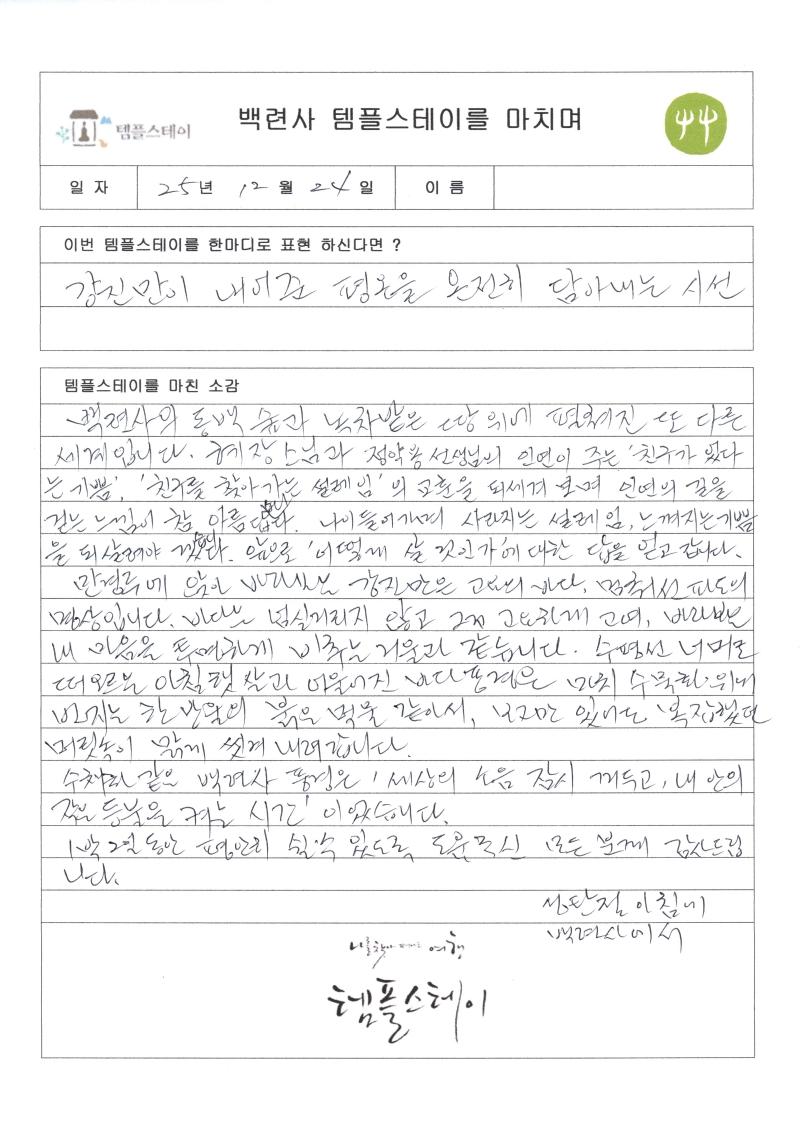 템플스테이
백련사 템플스테이를 마치며
일 자 25년 12월 24일 이 름
이번 템플스테이를 한마디로 표현 하신다면 ?
강진만이 내어준 평온을 온전히 담아내는 시선
템플스테이를 마친 소감
백련사의 동백 숲과 녹차밭은 땅 위에 펼쳐진 또 다른
세계입니다. 혜장스님과 정약용선생님의 인연이 주는 '친구가 있다
는 기쁨', '친구를 찾아가는 설레임'의 교훈을 되새겨 보며 인연의 길을
걷는 느낌이 참 아름답습니다. 나이들어가며 사라지는 설레임, 느껴지는 기쁨
을 되살려야 겠습니다. 앞으로 '어떻게 살 것인가'에 대한 답을 얻고 갑니다.
만경루에 앉아 바라보는 강진만은 고요의 바다. 멈춰선 파도의
명상입니다. 바다는 넘실거리지 않고 그저 고요하게 고여, 바라보는
내 마음을 투명하게 비추는 거울과 같습니다. 수평선 너머로
떠오르는 아침 햇살과 어울어진 바다풍경은 마치 수묵화 위에
번지는 한 방울의 붉은 먹물 같아서, 보고만 있어도 복잡했던
머릿속이 맑게 씻겨 내려갑니다.
수채화 같은 백련사 풍경은 '세상의 소음 잠시 꺼두고, 내 안의
작은 등불을 켜는 시간' 이었습니다.
1박 2일 동안 평안히 쉴 수 있도록 도움주신 모든 분께 감사드립
니다.
성탄절 아침에
백련사에서
나를 찾아 떠나는 여행
템플스테이